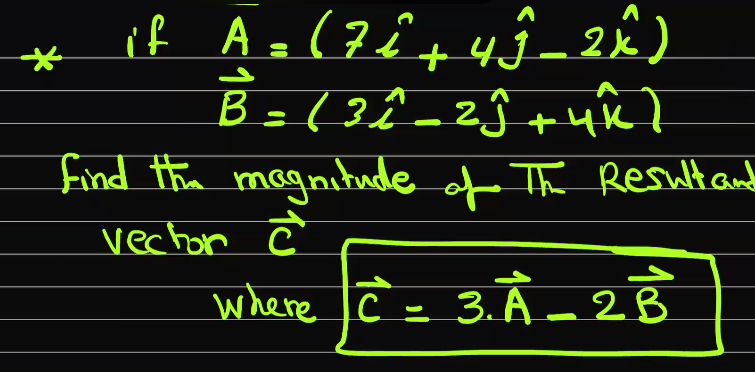 * if A = (7î + 4ĵ - 2k̂)
B⃗ = (3î - 2ĵ + 4k̂)
find the magnitude of Th Resultant
vector C⃗
where C⃗ = 3.A⃗ - 2B⃗